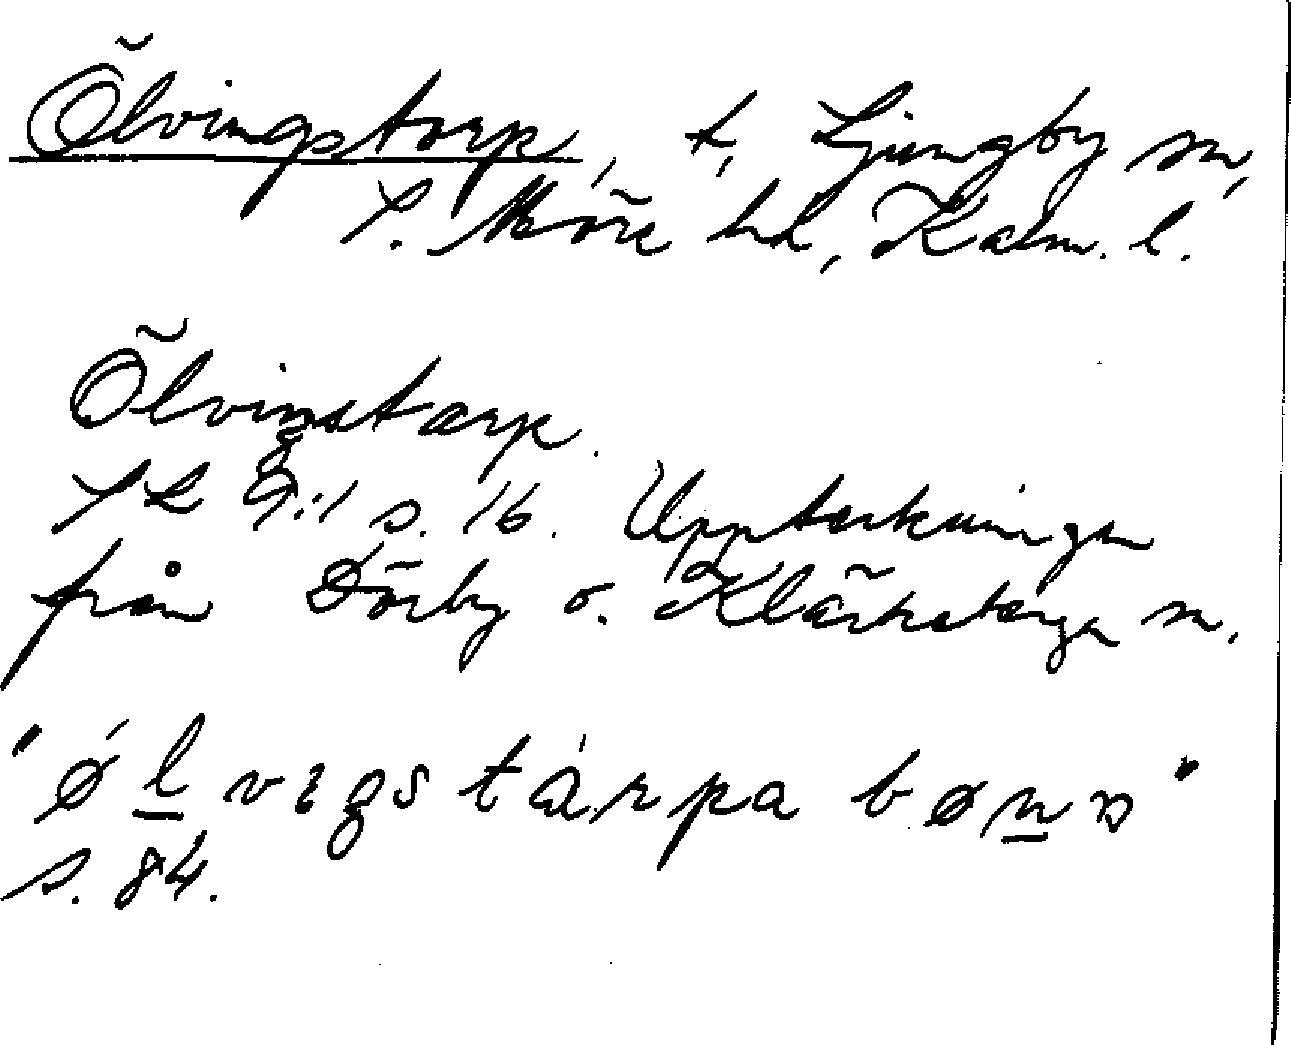 Ölvingstorp, t, Ljungby sn,
S. Möre hd, Kalm. l.
Ölvingstorp.
SL 9:1 s. 16. Uppteckningar
från Dörby o. Kläckeberga sn.
s. 84.